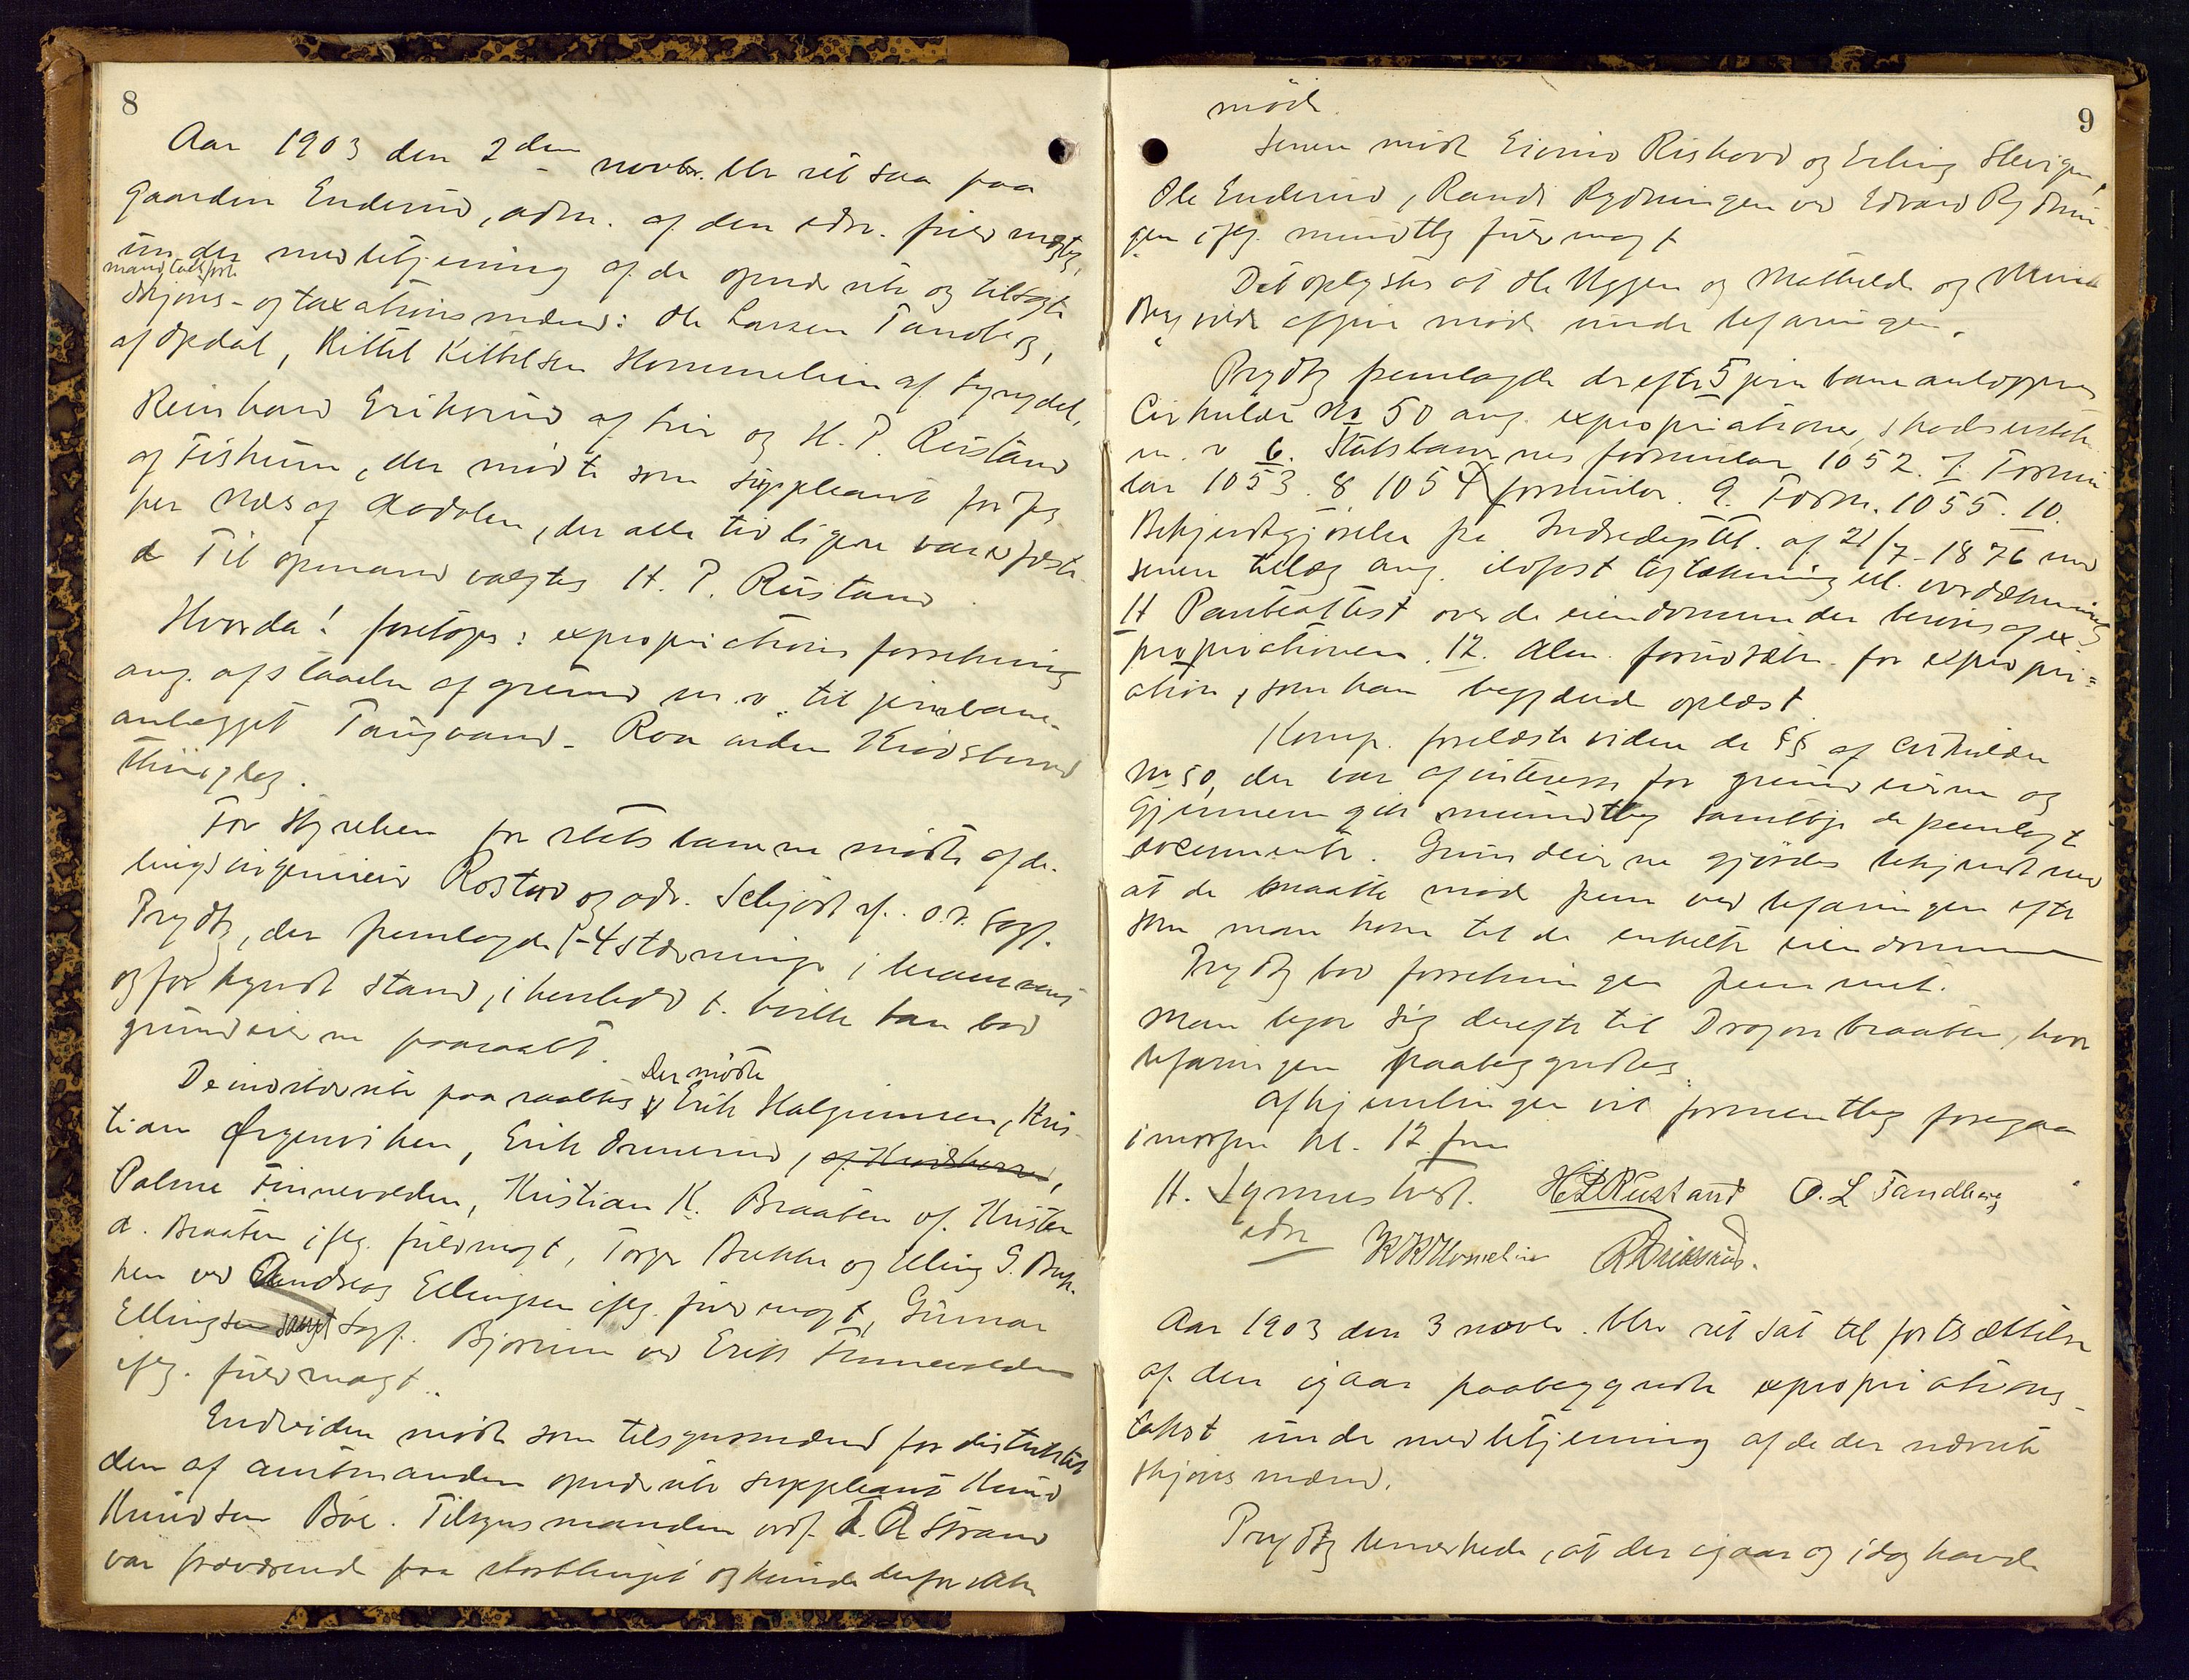 8
Aar 1903 den 2den novbr. blev ret sat paa
gaarden Enderud, adm. af den edsv. fuldmægtig,
under medbetjening af de opnævnte og tilsagte
mandtalsførte
skjøns- og taxationsmænd: Ole Larsen Tandberg,
af Opdal, Kittel Kittelsen Hommelien af Sigdal,
Reinhard Eriksrud af Lier og H. P. Rustand
af Fiskum, der mødte som suppleant for
per Næs af Aadalen, der alle tidligere var edfæste-
de Til opmand valgtes H. P. Rustand.
Hvorda! foretoges: expropriations forretning
ang. afstaaelse af grund m. v. til jernbane-
anlægget Tangvand - Roa inden Krødsherred
thinglag.
For styrelsen for statsbanerne mødte afde-
lingsingeniør Rostad og adv. Schjødt v. o.r. sagf.
Prydtz, der fremlagde 1-4 stævninger i
og forkyndt stand, i henhold t. hvilke han bad
grundeierne paaraabt.
De indstævnte paaraabtes Der mødte Erik Halgrimsen, Kris-
tian Ørgenviken, Erik Drunerud, af Krødsherred,
Palme Finnevolden, Kristian K. Braaten v. Kristen
A. Braaten ifølg. fuldmagt, Torger Bække og Elling G. Bæk-
ken ved Andreas Ellingsen ifølg. fuldmagt, Gunnar
Ellingsen samt Sagf. Bjørnum ved Erik Finnevolden
ifølg. fuldmagt.
Endvidere mødte som tilsynsmænd for distriktet
den af amtmanden opnævnte suppleant Knud
Knudsen Bøe. Tilsynsmanden ordf. T. A Strand
var fraværende paa storthinget og kunde derfor ikke
9
møde.
Senere mødte Eivind Riskovd og Erling Slevigen,
Ole Enderud, Randi Rydningen ved Edvard Rydnin-
gen ifølg. mundtlig fuldmagt
Det oplystes at Ole Uggen og Mathilde og
vilde afgive møde under befaringen.
Prydtz fremlagde derefter 5 jernbaneanlæggenes
Cirkulær No 50 ang. expropriationer, skadeserstatn.
m. v 6. Statsbanernes formular 1052. 7 Formu-
lar 1053. 8 1054 formular. 9. Form. 1055. 10.
Bekjendtgjørelse fra Indredeptet. af 21/7-1876 med
senere tillæg ang. ildfast tagtækning ell. vordækning
11 Panteattest over de eiendomme der berøres af ex-
propriationen. 12. Alm. forudsætn. for expropri=
ation, som han begjærede oplæst.
Komp. forelæste videre de §§ af cirkulær
No 50, der var af interesse for grundeierne og
gjennemgik mundtlig samtlige de fremlagt
documenter. Grundeierne gjordes bekjendt med
at de maatte møde frem ved befaringen efter
som man kom til de enkelte eiendomme
Prydtz bad forretningen fremmet.
Man begav sig derefter til Dragonbraaten, hvor
befaringen paabegyndtes.
Afhjemlingen vil formentlig foregaa
imorgen kl. 12 fm
H. Lynnes tvedt. H P Rustand O. L Tandberg
edsv K K Homelien R Eriksrud.
Aar 1903 den 3 novbr. blev ret sat til fortsættelse
af den igaar paabegyndte expropriations-
takst under medbetjening af de der nævnte
skjønsmænd.
Prydtz bemerkede, at der igaar og idag havde